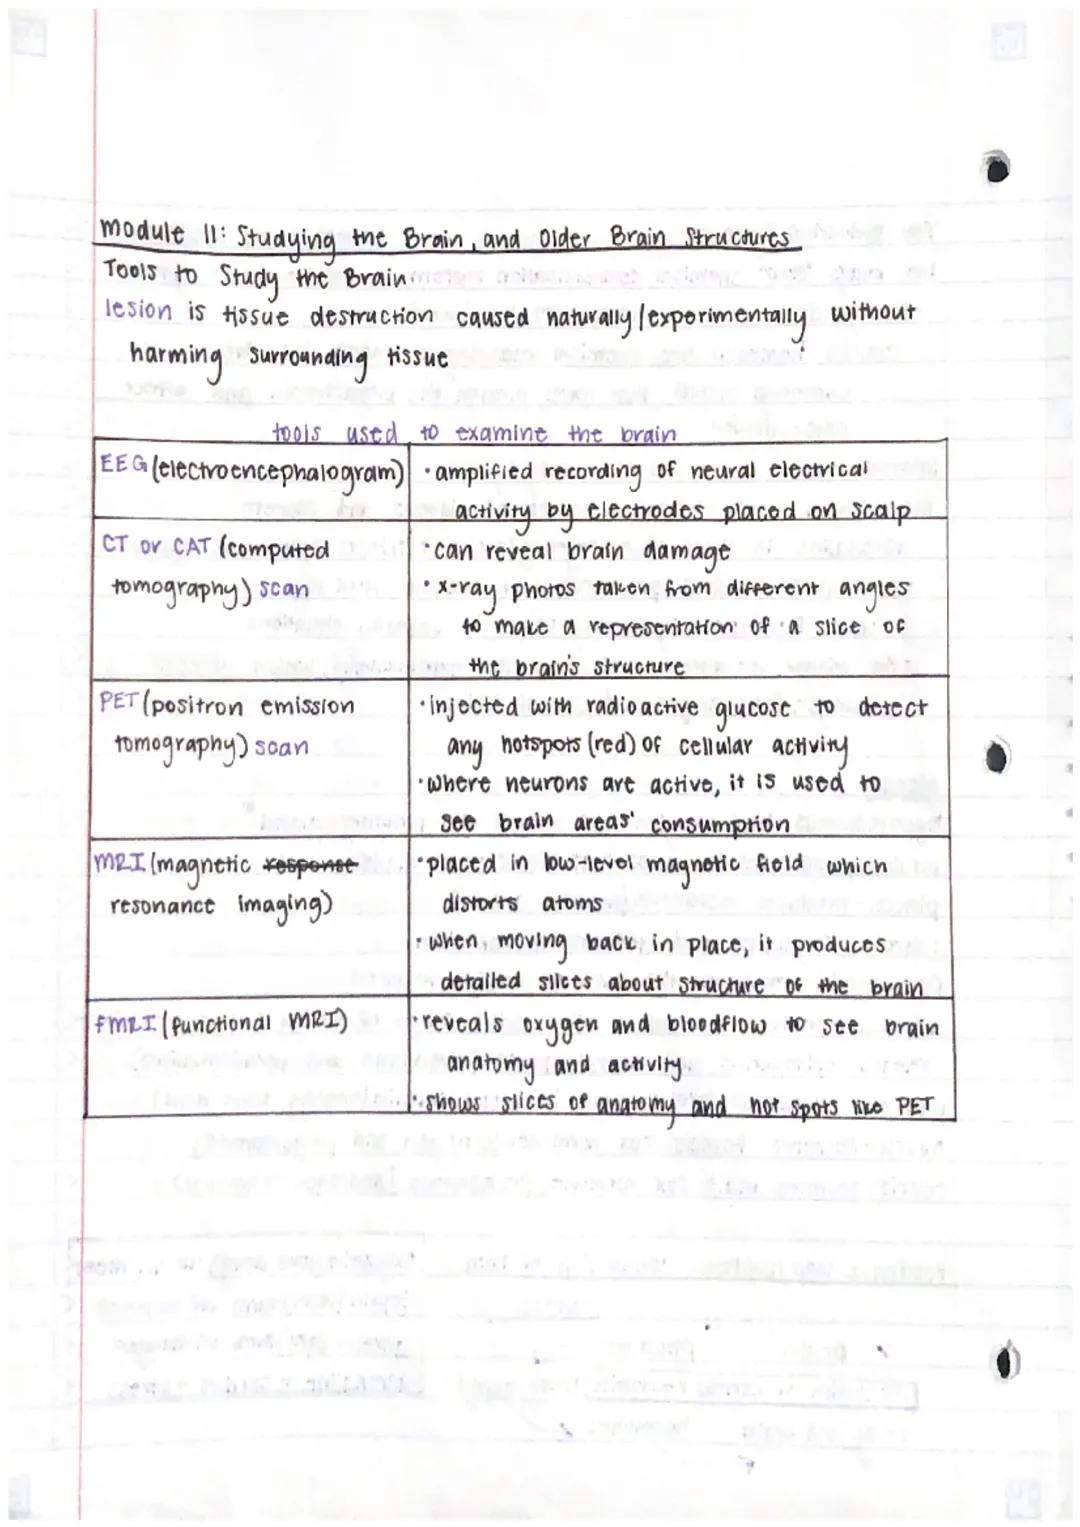 Module 11: Studying the Brain, and Older Brain Structures
Tools to Study the Brain
lesion is tissue destruction caused naturally/experimentally without
harming surrounding tissue
tools used to examine the brain
EEG (electroencephalogram)
· amplified recording of neural electrical
activity by electrodes placed on scalp
CT or CAT (computed
tomography) scan
· can reveal brain damage
· x-ray photos taken from different angles
to make a representation of a slice of
the brain's structure
PET (positron emission
tomography) scan
· injected with radioactive glucose to detect
any hotspots (red) of cellular activity
· where neurons are active, it is used to
see brain areas' consumption
MRI (magnetic response
resonance imaging)
· placed in low-level magnetic field which
distorts atoms
· when moving back in place, it produces
detailed slices about structure of the brain
fMRI (functional MRI)
· reveals oxygen and bloodflow to see brain
anatomy and activity
· shows slices of anatomy and hot spots like PET